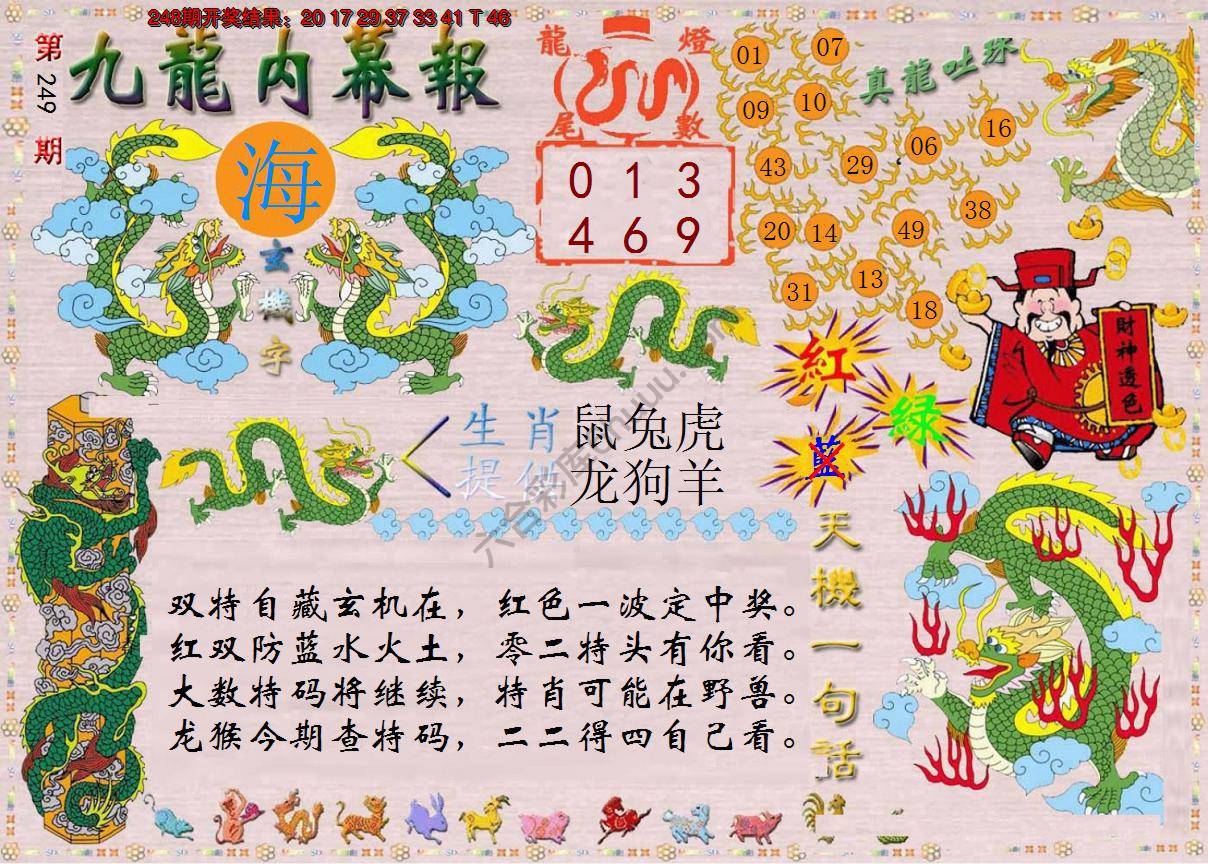 248期开奖结果：20 17 29 37 33 41 T 46
第249期
九龍内幕報
海
玄機字
龍燈
尾數
0 1 3
4 6 9
真龍吐珠
01
07
09
10
43
29
06
16
20
14
49
38
31
13
18
紅
綠
藍
財神透色
生肖
提供
鼠兔虎
龙狗羊
双特自藏玄机在，红色一波定中奖。
红双防蓝水火土，零二特头有你看。
大数特码将继续，特肖可能在野兽。
龙猴今期查特码，二二得四自己看。
天機一句話